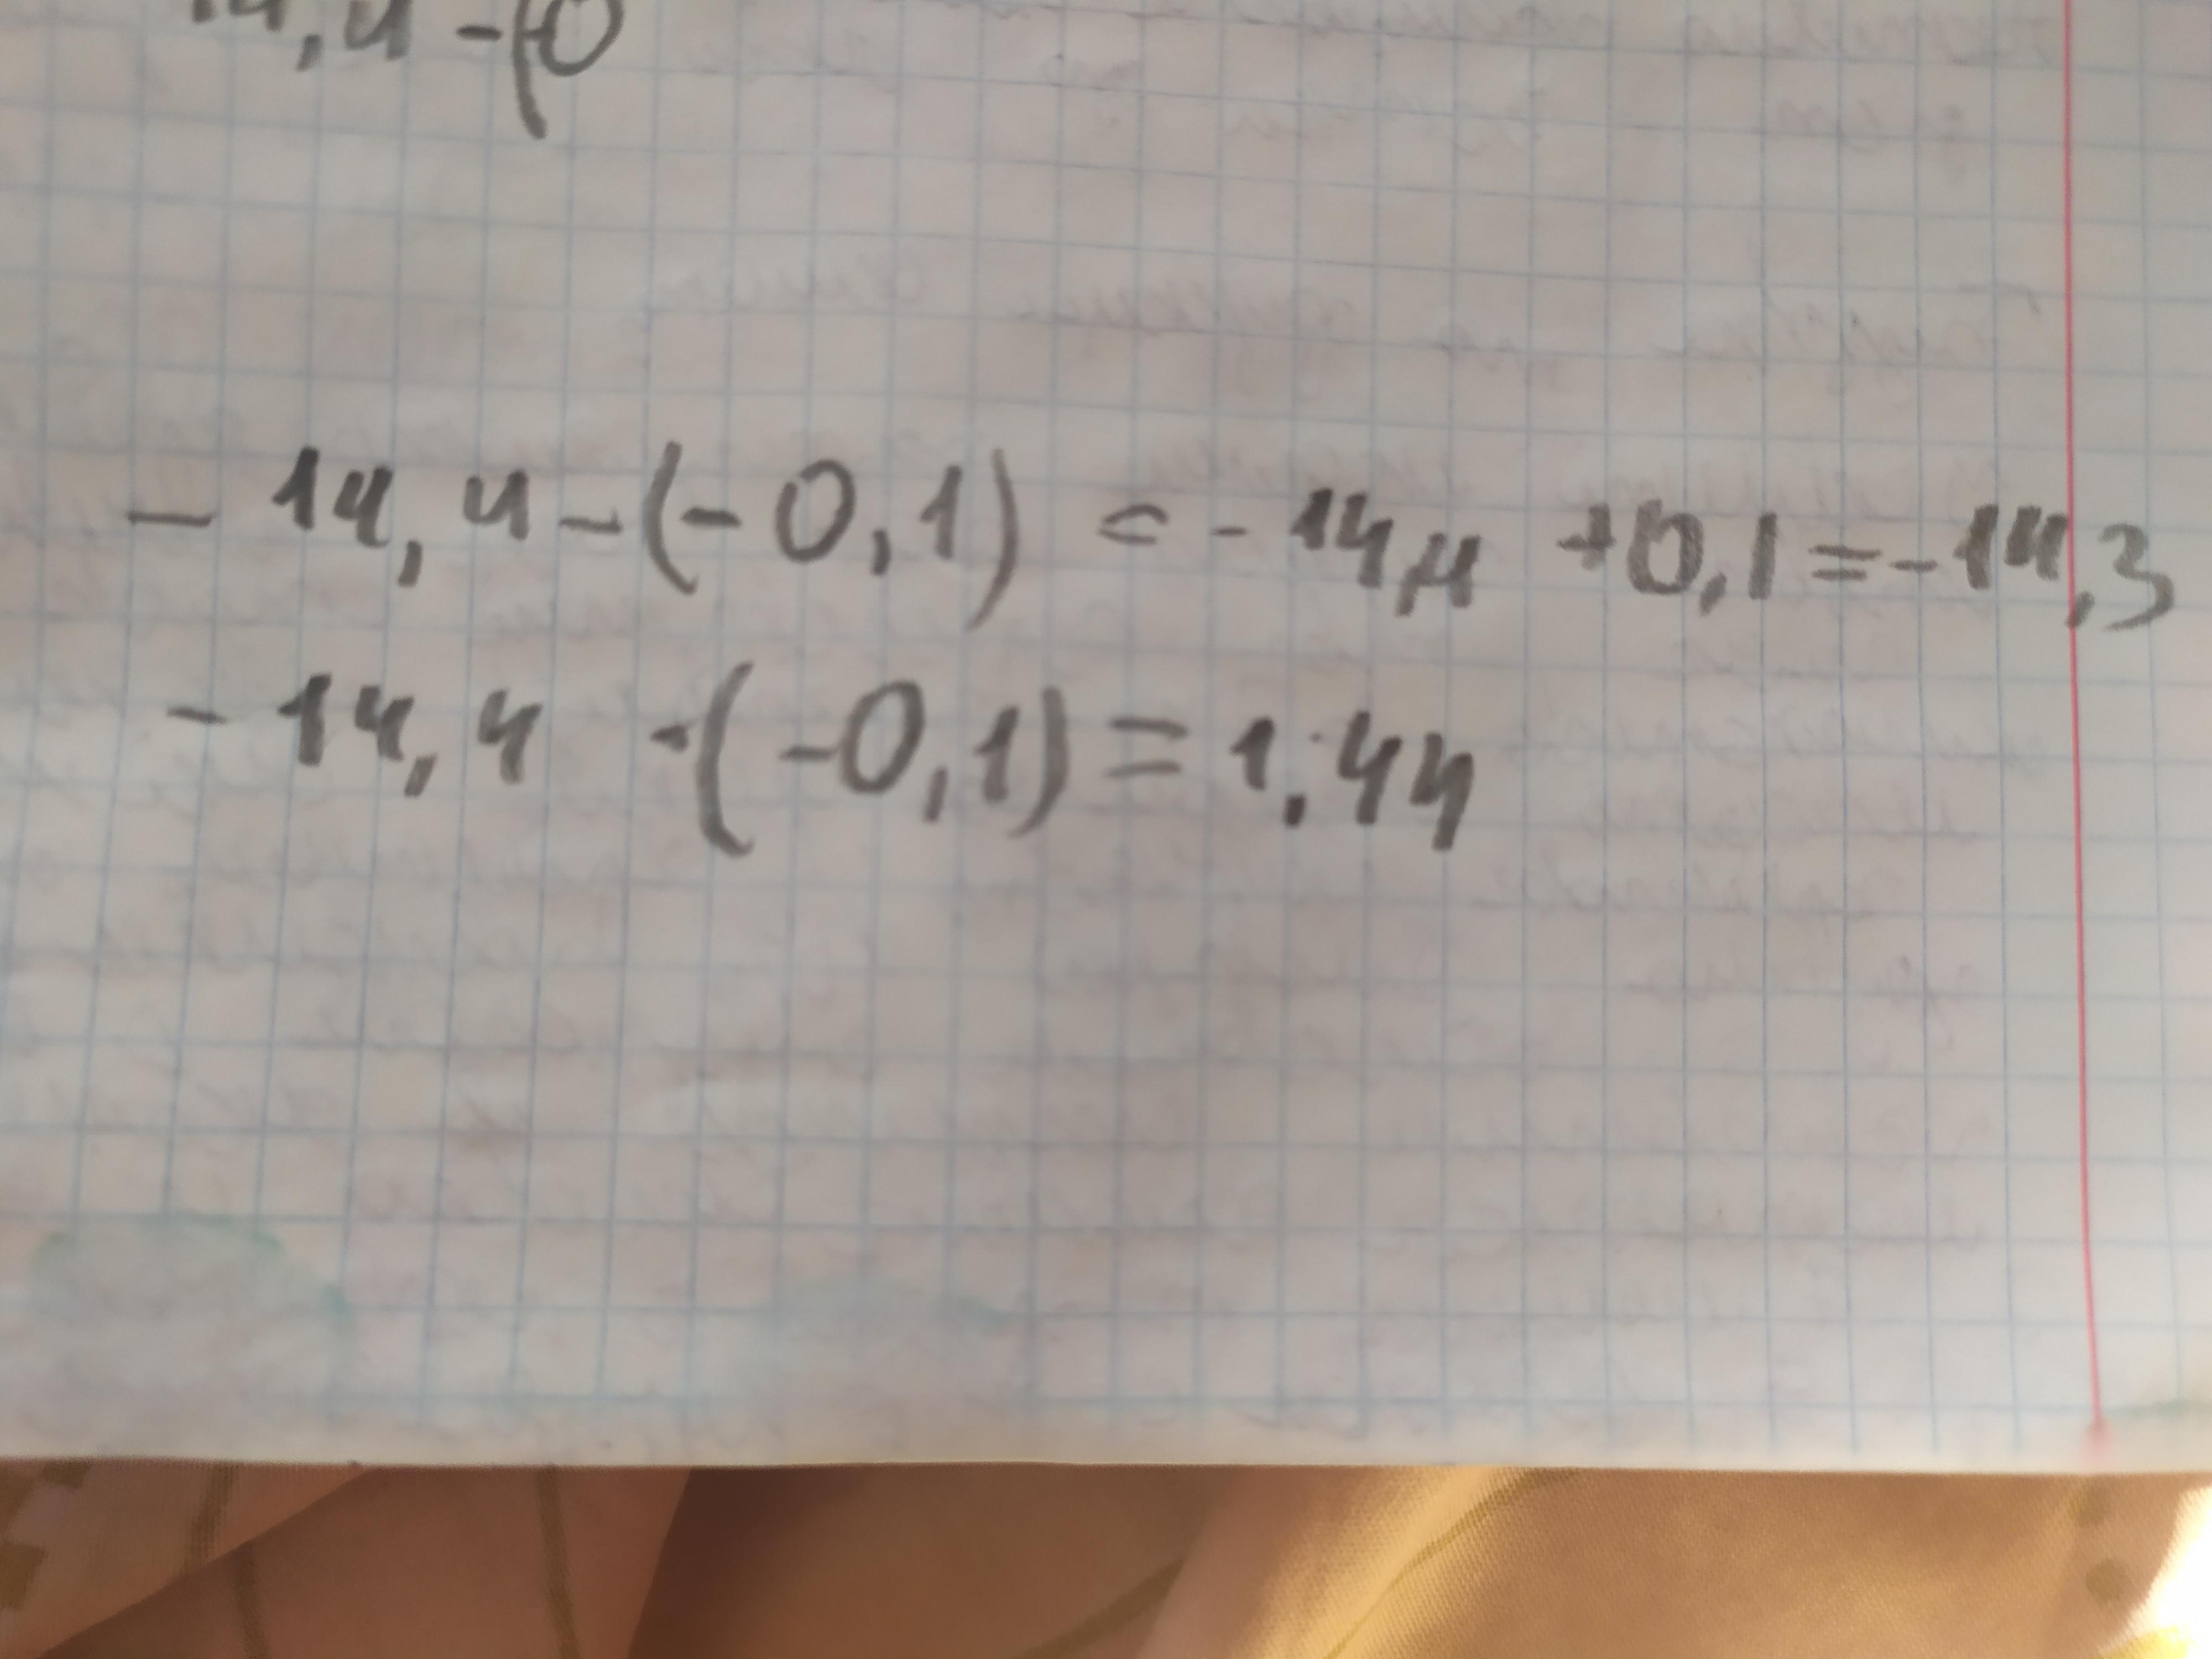 14,4 -(-0
- 14,4 - (-0,1) = - 14,4 + 0,1 = - 14,3
- 14,4 · (-0,1) = 1,44